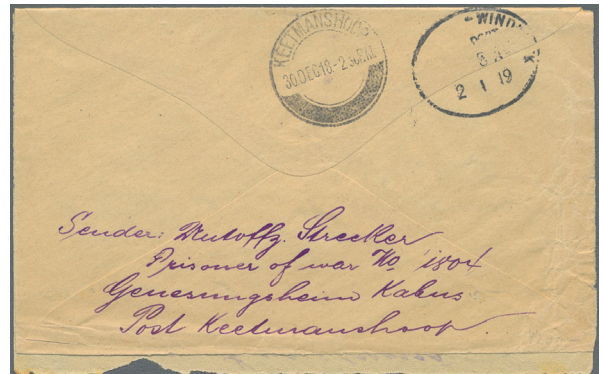 KEETMANSHOOP
30 DEC 18 - 2 30 P.M.
WIND
2 1 19
Sender: Untoffz. Strecker
Prisoner of war No 1804
Genesungsheim Kabus
Post Keetmanshoop.